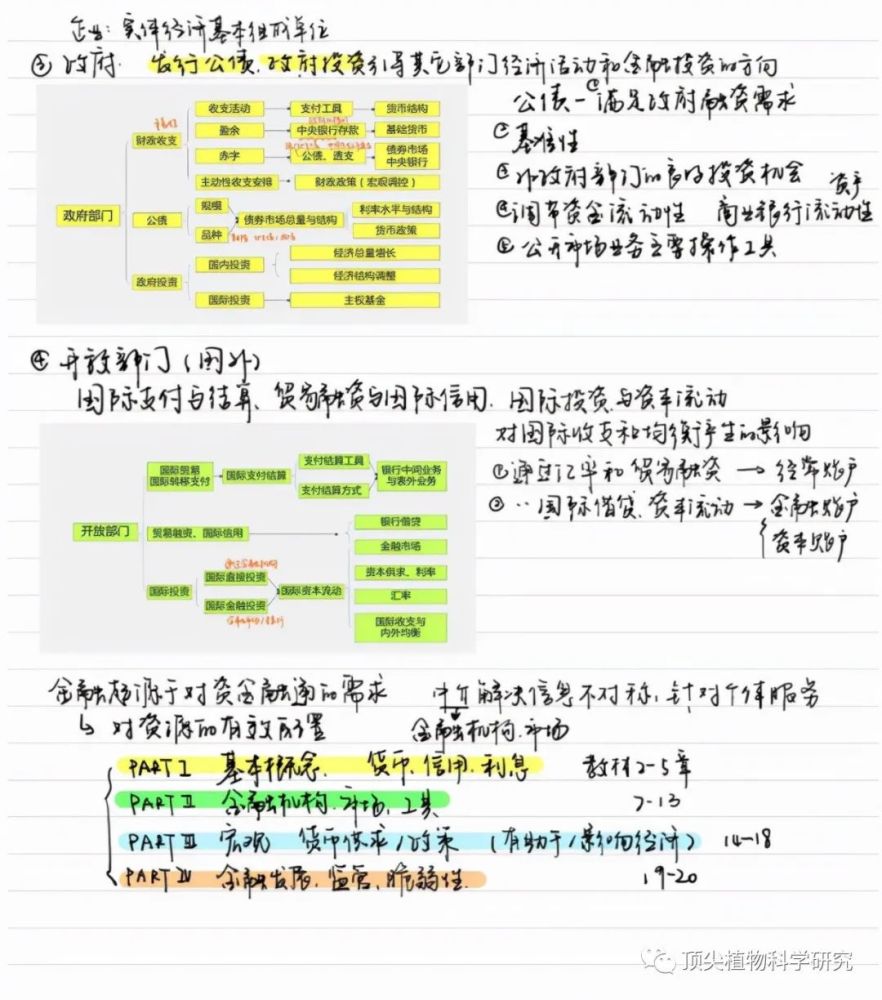 企业: 实体经济基本组成单位
③ 政府. 发行公债. 政府投资引导其它部门经济活动和金融投资的方向
公债 — ①满足政府融资需求
②基准性
③非政府部门的良好投资机会 资产
④调节资金流动性 商业银行流动性
⑤公开市场业务主要操作工具
政府部门
财政收支
收支活动 支付工具 货币结构
盈余 中央银行存款 基础货币
赤字 公债、透支 债券市场
中央银行
主动性收支安排 财政政策(宏观调控)
公债
规模
品种
债券市场总量与结构
利率水平与结构
货币政策
政府投资
国内投资
经济总量增长
经济结构调整
国际投资 主权基金
④ 开放部门(国外)
国际支付与结算、贸易融资与国际信用. 国际投资与资本流动
对国际收支和均衡产生的影响
①通过汇率和贸易融资 → 经常账户
② ‥ 国际借贷、资本流动 → 金融账户
资本账户
开放部门
国际贸易
国际转移支付
国际支付结算
支付结算工具
支付结算方式
银行中间业务
与表外业务
贸易融资、国际信用
银行借贷
金融市场
资本供求、利率
汇率
国际收支与
内外均衡
国际投资
国际直接投资
国际金融投资
国际资本流动
金融起源于对资金融通的需求 中介解决信息不对称, 针对个体服务
↳ 对资源的有效配置 金融机构.市场
PART I 基本概念. 货币.信用.利息 教材2-5章
PART II 金融机构.市场.工具 7-13
PART III 宏观 货币供求/政策 (有助于/影响经济) 14-18
PART IV 金融发展、监管、脆弱性. 19-20
顶尖植物科学研究